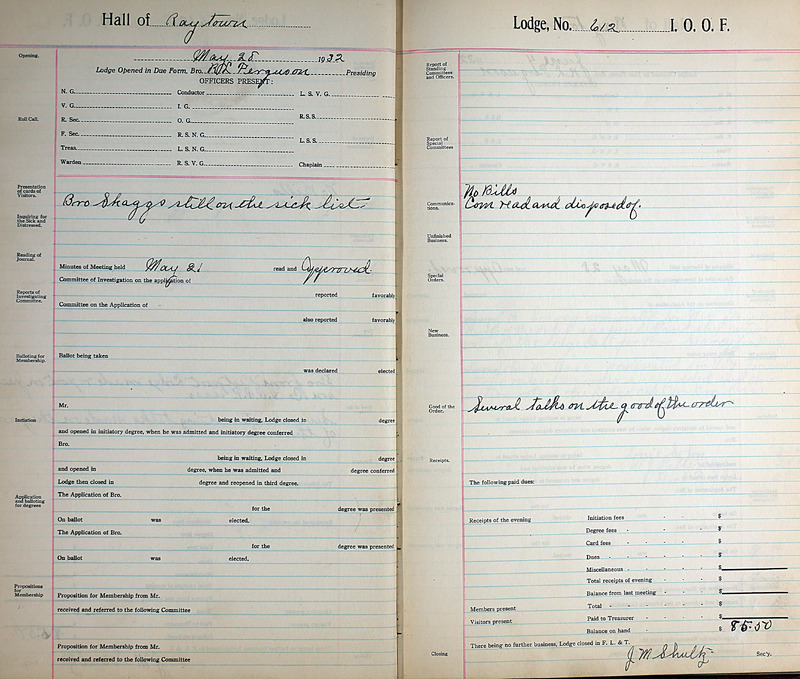 Hall of Raytown Lodge, No. 612 I. O. O. F.
Opening.
May 28 1932
Lodge Opened in Due Form, Bro. Ferguson Presiding
OFFICERS PRESENT:
Roll Call.
N. G. Conductor L. S. V. G.
V. G. I. G.
R. Sec. O. G. R. S. S.
F. Sec. R. S. N. G.
Treas. L. S. N. G. L. S. S.
Warden R. S. V. G. Chaplain
Presentation of cards of Visitors.
Bro Skaggs still on the sick list
Inquiring for the Sick and Distressed.
Reading of Journal.
Minutes of Meeting held May 21 read and Approved.
Committee of Investigation on the application of
Reports of Investigating Committee.
reported favorably
Committee on the Application of
also reported favorably
Balloting for Membership.
Ballot being taken
was declared elected
Mr.
Initiation
being in waiting, Lodge closed in degree
and opened in initiatory degree, when he was admitted and initiatory degree conferred
Bro.
being in waiting, Lodge closed in degree
and opened in degree, when he was admitted and degree conferred
Lodge then closed in degree and reopened in third degree.
Application and balloting for degrees
The Application of Bro.
for the degree was presented
On ballot was elected.
The Application of Bro.
for the degree was presented
On ballot was elected.
Propositions for Membership
Proposition for Membership from Mr.
received and referred to the following Committee
Proposition for Membership from Mr.
received and referred to the following Committee
Report of Standing Committees and Officers.
Report of Special Committees
No Bills
Communications.
Com read and disposed of.
Unfinished Business.
Special Orders.
New Business.
Good of the Order.
Several talks on the good of the order
Receipts.
The following paid dues:
Receipts of the evening Initiation fees $
Degree fees $
Card fees $
Dues $
Miscellaneous $
Total receipts of evening $
Balance from last meeting $
Members present Total $
Visitors present Paid to Treasurer $
Balance on hand $ 85.50
There being no further business, Lodge closed in F. L. & T.
Closing J M Shultz Sec'y.